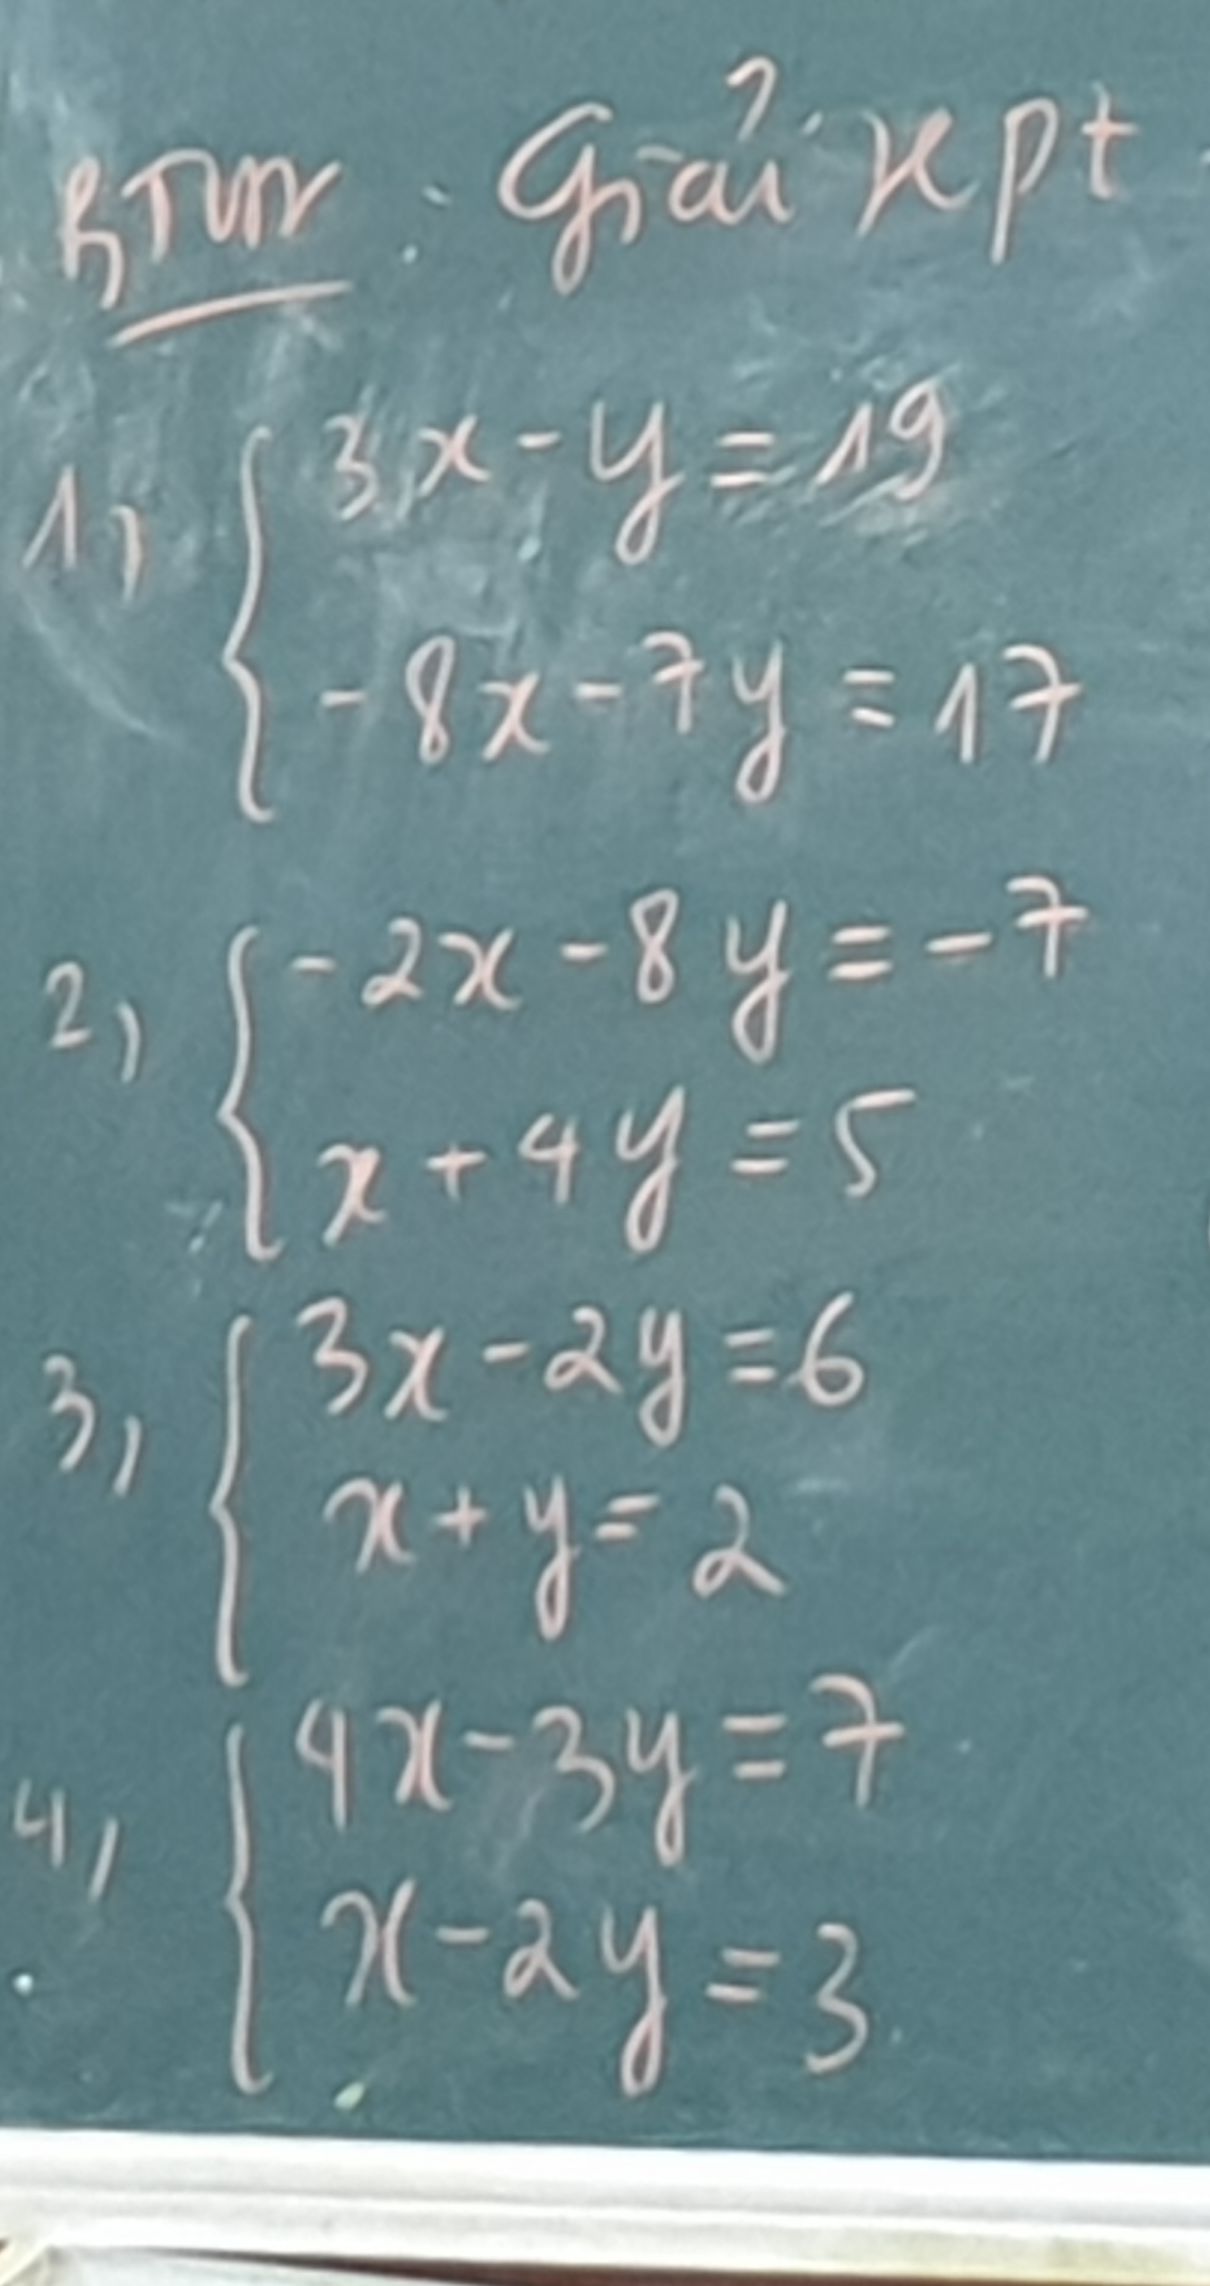 BTVN : Giải hpt
1, { 3x - y = 19
-8x - 7y = 17
2, { -2x - 8y = -7
x + 4y = 5
3, { 3x - 2y = 6
x + y = 2
4, { 4x - 3y = 7
x - 2y = 3